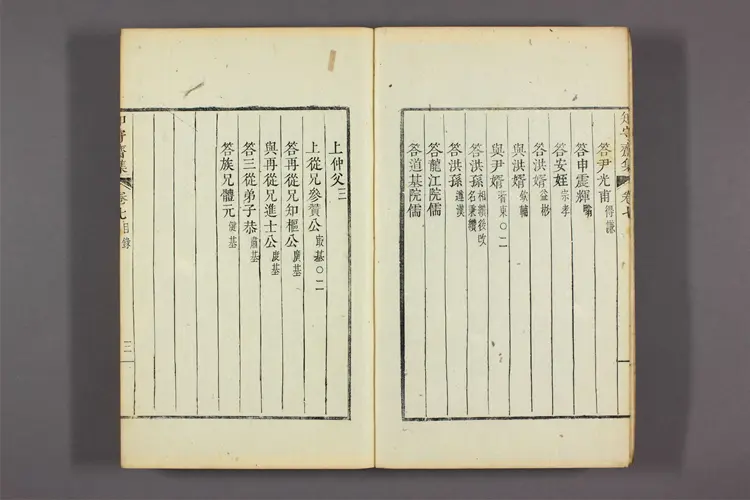 知守齋集 卷七
答尹光甫得謙
答申震輝
答安姪宗孝
答洪婿益彬
與洪婿
與尹婿蓍東○二
答洪孫相纘後改名秉纘
答洪孫
答龍江院儒
答道基院儒
上仲父三
上從兄參贊公最基○二
答再從兄知樞公廣基
與再從兄進士公度基
答三從弟子恭肅基
答族兄體元健基
守齋集 卷七目錄 三